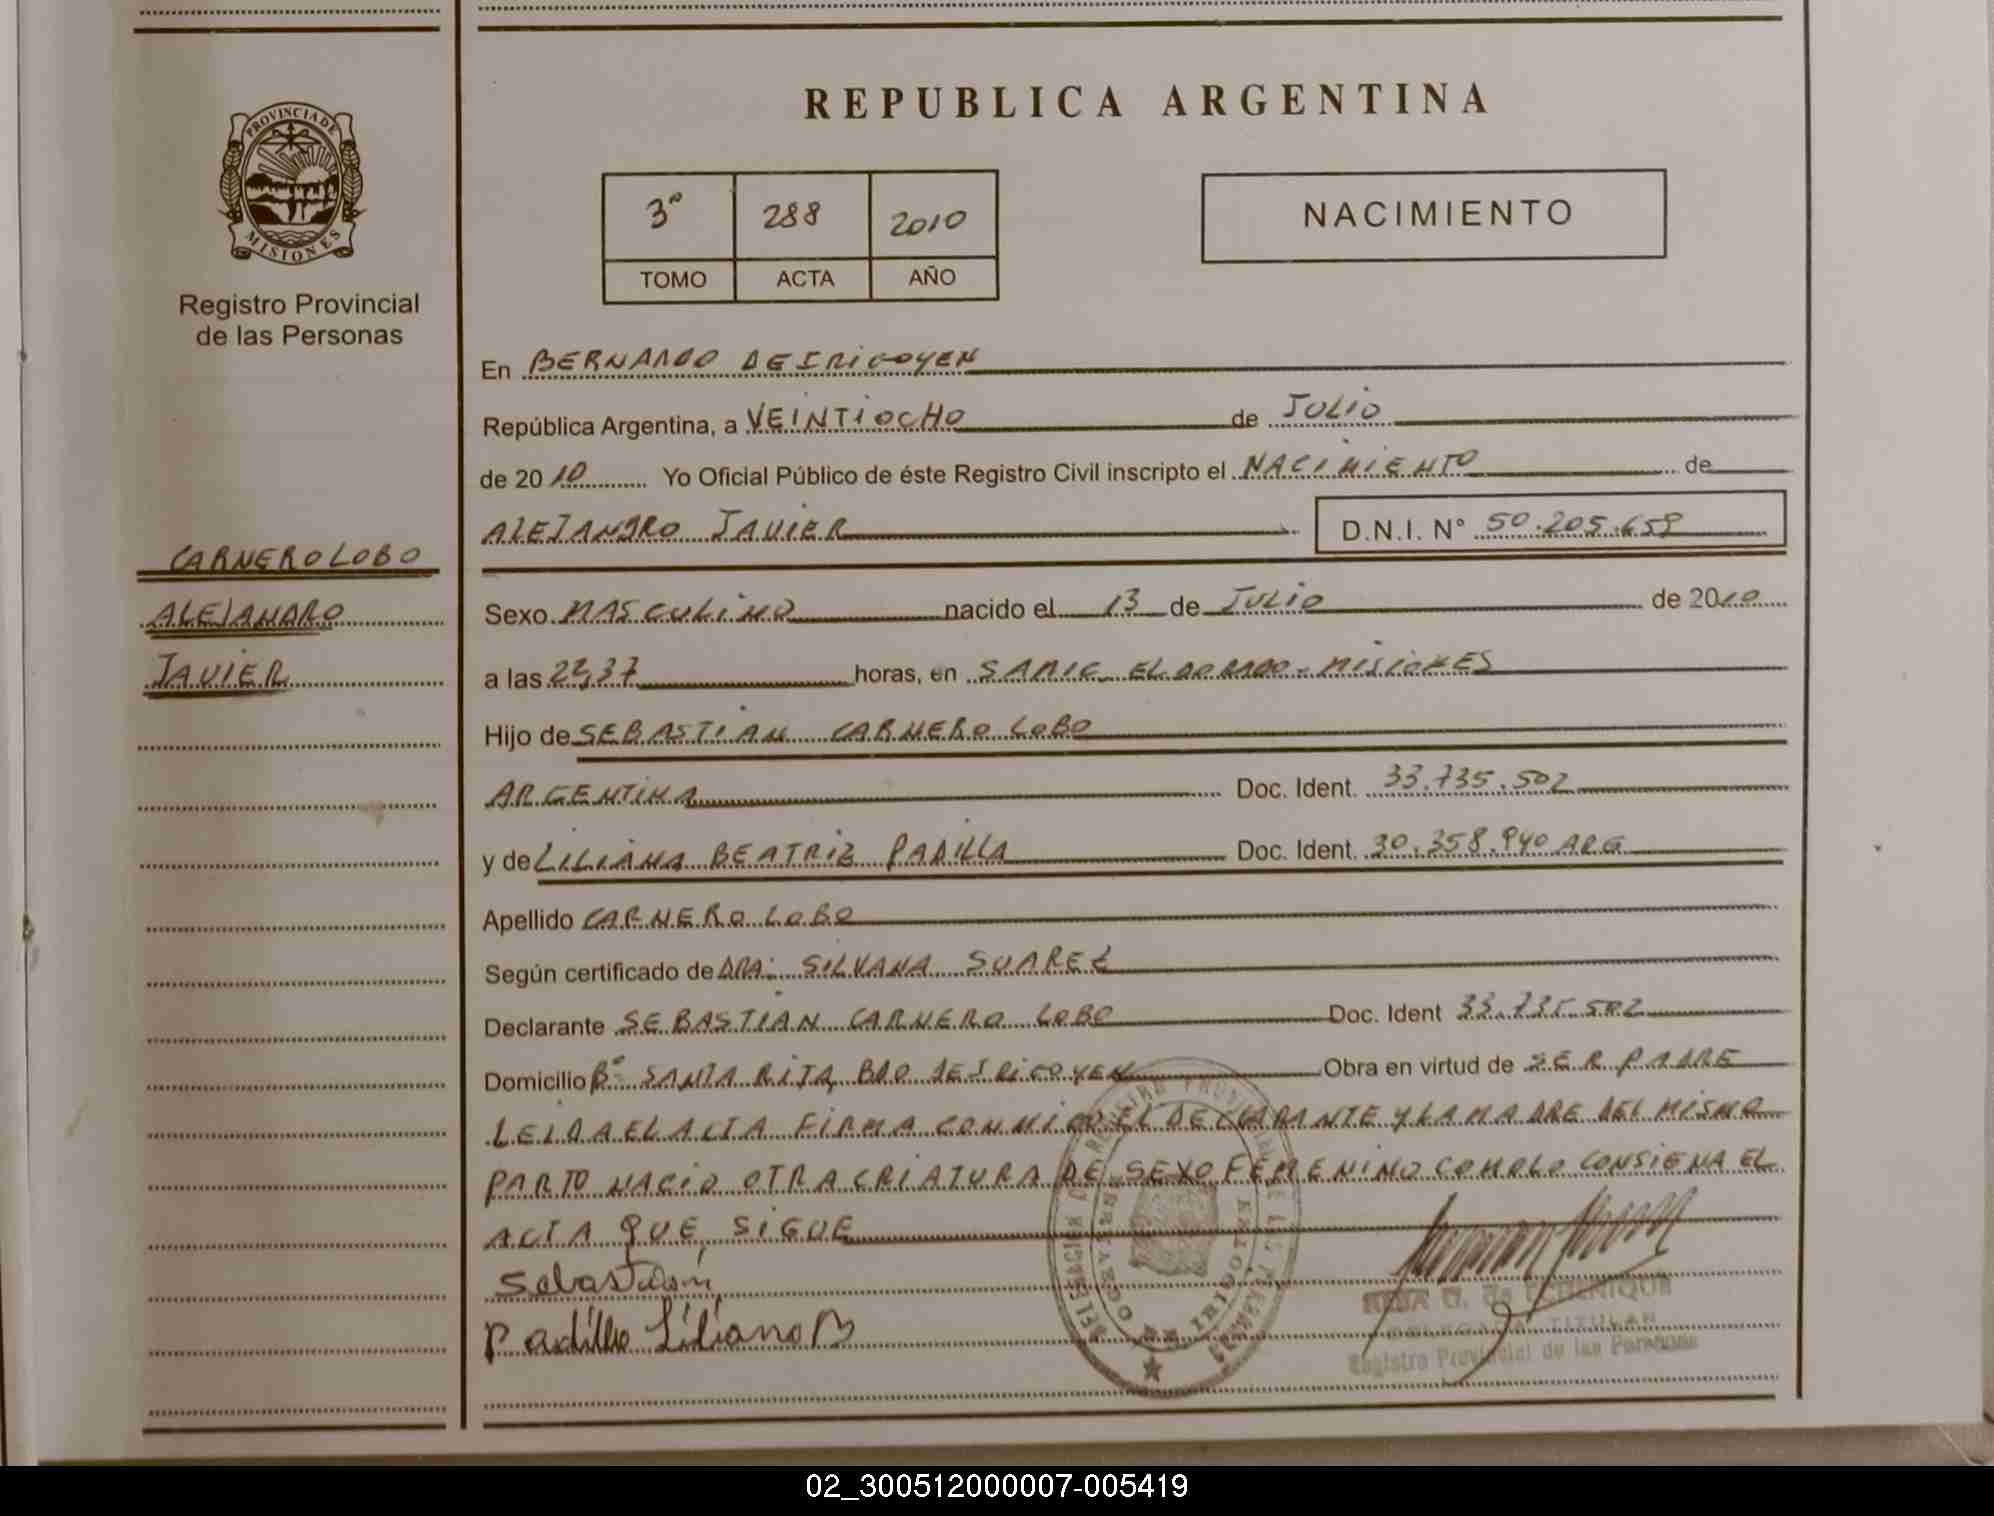 PROVINCIA DE
MISIONES
Registro Provincial
de las Personas
CARNERO LOBO
ALEJANDRO
JAVIER
REPUBLICA ARGENTINA
3º 288 2010
TOMO ACTA AÑO
NACIMIENTO
En BERNARDO DE IRIGOYEN
República Argentina, a VEINTIOCHO de JULIO
de 2010 Yo Oficial Público de éste Registro Civil inscripto el NACIMIENTO de
ALEJANDRO JAVIER D.N.I. N° 50.205.659
Sexo MASCULINO nacido el 13 de JULIO de 2010
a las 22,37 horas, en SAMIC ELDORADO - MISIONES
Hijo de SEBASTIAN CARNERO LOBO
ARGENTINA Doc. Ident. 33.735.502
y de LILIANA BEATRIZ PADILLA Doc. Ident. 30.358.940 ARG
Apellido CARNERO LOBO
Según certificado de DRA: SILVANA SUAREZ
Declarante SEBASTIAN CARNERO LOBO Doc. Ident 33.735.502
Domicilio Bº SANTA RITA, BDO DE IRIGOYEN Obra en virtud de SER PADRE
LEIDA EL ACTA FIRMA CONMIGO EL DECLARANTE Y LA MADRE DEL MISMO
PARTO NACIO OTRA CRIATURA DE SEXO FEMENINO COMO LO CONSIGNA EL
ACTA QUE SIGUE
Sebastian
Padilla Liliana B
DELEGADA TITULAR
Registro Provincial de las Personas
02_300512000007-005419